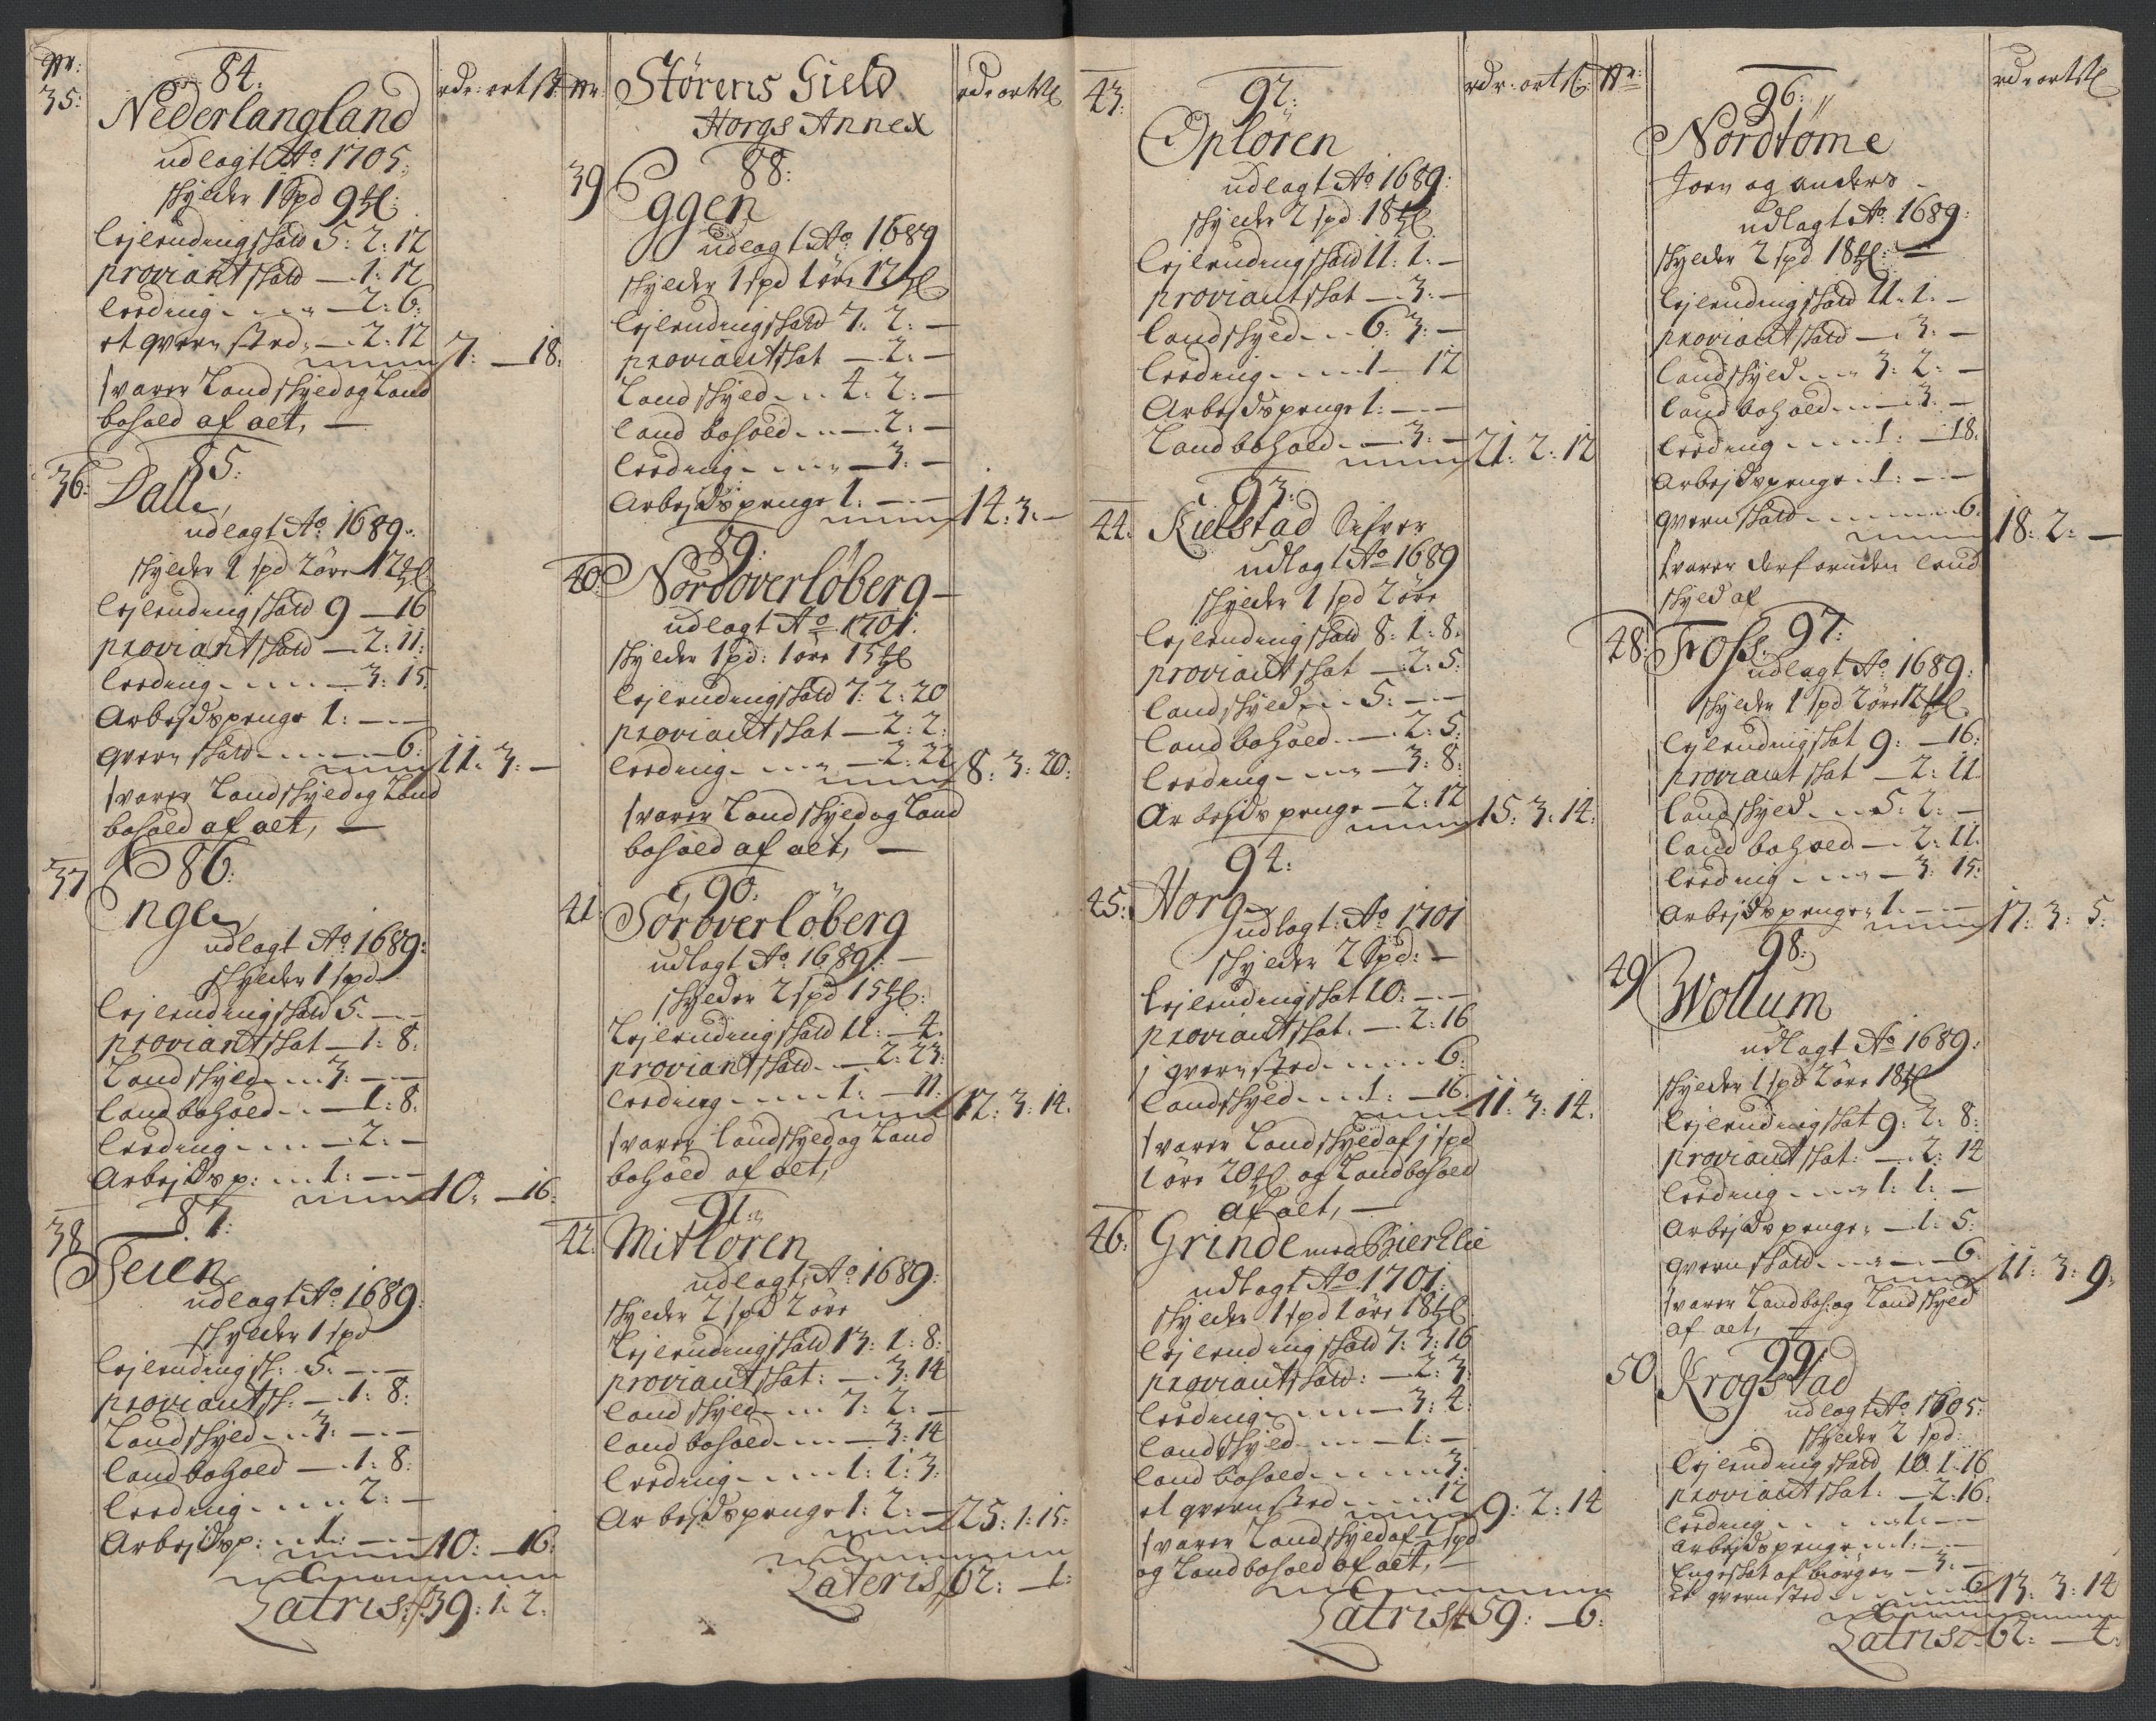 Nr:
rdr: ort ß:
35:
84:
Nederlangland
udlagt Ao: 1705:
skylder 1 Spd 9 ℔:
lejlendingskald 5: 2: 12
proviantskald — 1: 12
leeding — 2: 6:
et qvernsted — 2: 12
7: — 18:
svarer Landskyld og Land
bohold af alt, —
36:
85:
Dall,
udlagt Ao: 1689:
skylder 1 spd 2 öre 12 ℔
lejlendingskald 9 — 16
proviantskald — 2: 11:
leeding — 3: 15:
Arbejdspenge 1: — —
qvernskald — 6:
11: 3: —
svarer Landskyld og Land
bohold af alt, —
37
86:
Engen
udlagt Ao: 1689:
skylder 1 spd
lejlendingskald 5: — —
proviantskat — 1: 8:
Landskyld 3: — —
landbohold — 1: 8:
leeding — 2: —
Arbejdsp: 1: — —
10: — 16:
38
87:
Teien
udlagt Ao: 1689:
skylder 1 spd
lejlendingsk: 5: — —
proviantsk: — 1: 8:
Landskyld 3: — —
landbohold — 1: 8:
leeding 2: —
Arbejdsp: 1: — —
10: — 16:
Latris: 39: 1: 2:
Nr:
Störens Gield
rdr ort ß
Horgs Annex
39
88:
Eggen
udlagt Ao: 1689
skylder 1 spd 1 öre 12 ℔
lejlendingskald 7: 2: —
proviantskat — 2: —
Landskyld 4: 2: —
land bohold — 2: —
leeding — 3: —
Arbejdspenge 1: — —
14: 3: —
40:
89:
Nordoverlöberg —
udlagt Ao 1701:
skylder 1 pd: 1 öre 15 ℔
lejlendingskald 7: 2: 20
proviantskat — 2: 2:
leeding — 2: 22
8: 3: 20:
svarer Landskyld og Land
bohold af alt, —
41:
90:
Söroverlöberg
udlagt Ao: 1689: —
skylder 2 spd 15 ℔:
Lejlendingskald 11: — 4:
proviantskald — 2: 23:
leeding 1: — 11:
12: 3: 14:
svarer landskyld og Land
bohold af alt,
42:
91:
Mitlören
udlagt Ao: 1689:
skylder 2 spd 2 öre
Lejlendingskald 13: 1: 8:
proviantskat: — 3: 14
landskyld 7: 2: —
landbohold — 3: 14
leeding 1: 1: 3:
Arbejdspenge 1: 2: —
25: 1: 15:
Lateris 62: — 1:
43:
92:
rdr: ort ß:
Oplören
udlagt Ao 1689:
skylder 2 spd 18 ℔
lejlendingskald 11: 1: —
proviantskat — 3: —
landskyld 6: 3: —
leeding 1 — 12
Arbejdspenge 1: — —
Landbohold — 3: —
21: 2: 12
44:
93:
Kielstad
udlagt Ao 1689
skylder 1 spd 2 öre
lejlendingskald 8: 1: 8:
proviantskat — 2: 5:
landskyld 5: — —
landbohold — 2: 5:
leeding — 3: 8:
Arbejdspenge — 2: 12
15: 3: 14:
45:
94:
Horg
udlagt: Ao: 1701
skylder 2 Spd: —
lejlendingskat 10: — —
proviantskat — 2: 16
j qvernsted 6:
landskyld 1: — 16
11: 3: 14:
svarer Landskyld af j spd
1 öre 20 ℔ og Landbohold
af alt, —
46:
Grinde med Bierklie
udlagt Ao 1701:
skylder 1 spd 1 öre 18 ℔
lejlendingskald 7: 3: 16
proviantskald: — 2: 3:
leeding — 3: 4:
landskyld — 1: —
landbohold 3:
et qvernsted 12
9: 2: 14
svarer Landskyld af 1 spd
og Landbohold af alt, —
Latris 59: — 6:
Nr:
96:
rdr ort ß
Nordtöme
Joen og anders
udlagt Ao: 1689:
skylder 2 spd 18 ℔: —
lejlendingskald 11: 1: —
proviantskald — 3: —
landskyld 3: 2: —
landbohold — 3: —
leeding 1: — 18:
Arbejdspenge 1: — —
qvernskald 6:
18: 2: —
svarer derforuden land
skyld af
48:
97:
Foss
udlagt Ao: 1689:
skylder 1 spd 2 öre 12 ℔
lejlendingskat 9: — 16:
proviantskat — 2: 11
landskyld 5: 2: —
landbohold — 2: 11:
leeding — 3: 15:
Arbejdspenge: 1: — —
17: 3: 5:
49
98:
Wollum
udlagt Ao 1689:
skylder 1 spd 2 öre 18 ℔
lejlendingskat 9: 2: 8:
proviantskat: — 2: 14
leeding 1: 1: —
Arbejdspenge: — 1: 5:
qvernskald 6:
11: 3: 9:
svarer Landboh: og Landskyld
af alt, —
50
99
Krogstad
udlagt Ao 1705:
skylder 2 spd:
lejlendingskald 10: 1: 16
proviantskat: — 2: 16:
leeding 1: —
Arbejdspenge 1: —
Engeskat af — 3: —
et qvernsted 6
13: 3: 14
Latris 62: — 4: